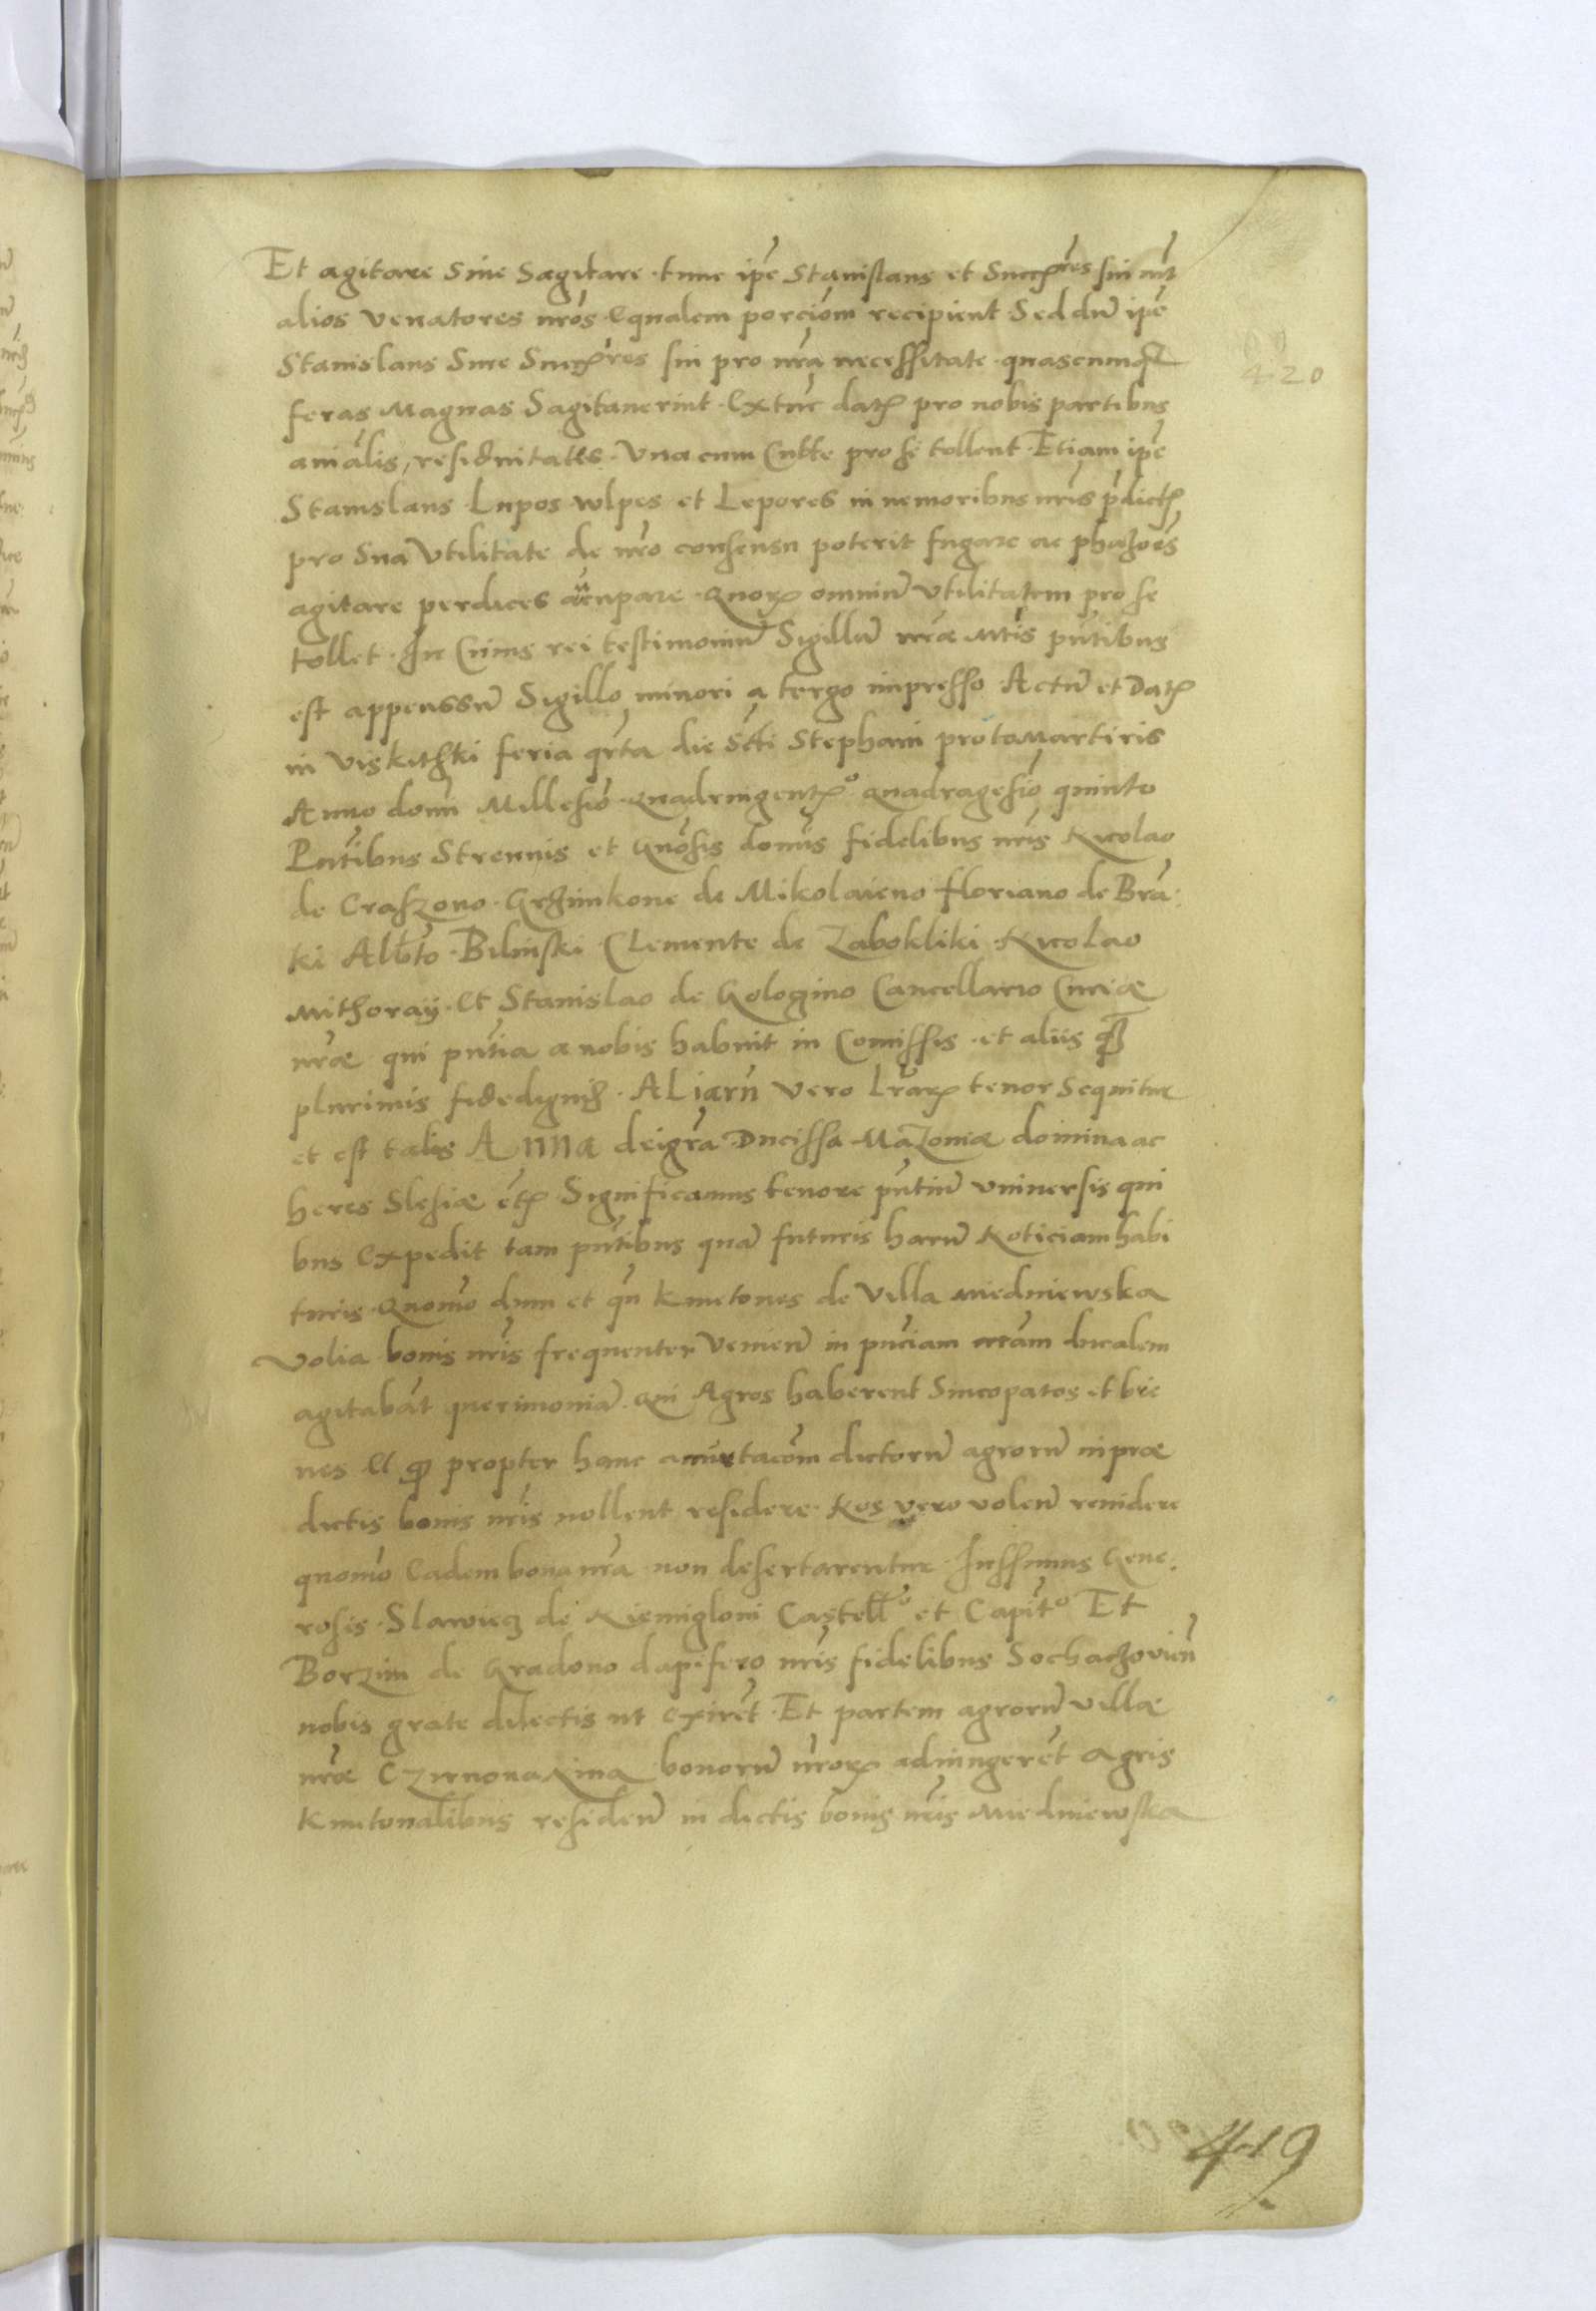 Et agitare Siue Sagitare tunc ipē Stanislaus et Succꝛres sui int̄
alios venatores nr̄os Equalem porcio͞m recipient Sed dū ipē
Stanislaus Siue Succꝛres sui pro nr̄a necessitate quascunqꝫ
feras Magnas Sagitauerint Extu͞c datꝭ pro nobis partibus
ani͞alis, residuitates Vna cum Cutte pro se tollent Etiam ipē
Stanislaus Lupos wlpes et Lepores in nemoribus nr̄is p̄dictꝭ
pro Sua Vtilitate de nr̄o consensu poterit fugare ac phazo͞es
agitare perdices aucupare Quorꝝ omniū Vtilitatem pro se
tollet In Cuius rei testimoniū Sigillū nr̄æ Mtis pn̄tibus
est appenssū Sigillo minori a tergo impresso Actū et Datꝭ
in Viskithki feria qr̄ta die Scti Stephani protoMartiris
Anno domi̅ Millesi͞o Quadringentꝭo quadragesi͞o quinto
Pn̄tibus Strennis et Gn͞osis domi͞s fidelibus nr̄is Nicolao
de Craszono Grzimkone de Mikolaieuo floriano de Bra
ki Alb̄to Bilinski Clemente de Zabokliki Nicolao
Mithoraÿ Et Stanislao de Gologino Cancellario Curiæ
nr̄æ qui pn̄tia a nobis habuit in Comissis et aliis qꝫ
plurimis fidedignis ALiarū vero Lr̄arꝝ tenor Sequitur
et est talis Anna deigr̄a Ducissa MaZoniæ domina ac
heres Slesiæ etꝭ Significamus tenore pn̄tiū vniuersis qui
bus Expedit tam pn̄tibus quā futuris harū Noticiam habi
turis Quomo͞ dum et qn̄ Kmetones de Villa Miedniewska
Volia bonis nr̄is frequenter Venien̄ in pn̄ciam nr̄am ducalem
agitaba͞t querimoniā Qui Agros haberent Sincopatos et bre
ues Et qꝫ propter hanc amirtaco͞m dictorū agrorū in præ
dictis bonis nr̄is nollent residere Nos vero volen̄ renidere
quomo͞ Eadem bona nr̄a non desertarentur Iussimus Gene
rosis Slawiecz de Niemigloni Castelł̄o et Capit͞o Et
Borzim de Gradono dapifero nr̄is fidelibus Sochaczouien̄
nobis grate dilectis ut Exire͞t Et partem agrorū villæ
nr̄æ CZirnonaNiua bonorū nr̄orꝝ adiungere͞t agris
Kmetonalibus residen̄ in dictis bonis nr̄is Miedniewska
420
419